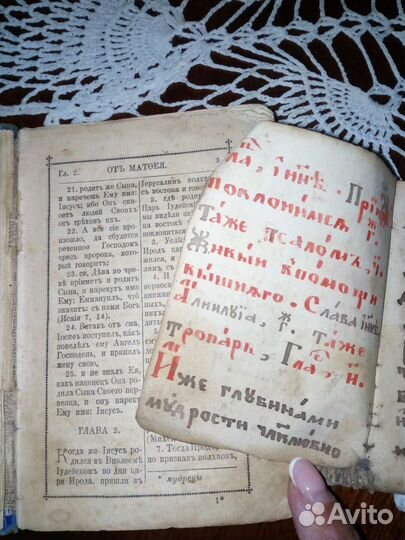 Гл. 2.
ОТЪ МАТѲЕЯ.
3
21. родитъ же Сына,
и наречешь Ему имя:
Іисусъ; ибо Онъ спа-
сетъ людей Своихъ
отъ грѣховъ ихъ.
22. А все сіе про-
изошло, да сбудется
реченное Господомъ
чрезъ пророка, кото-
рый говоритъ:
23. се, Дѣва во чре-
вѣ пріиметъ и родитъ
Сына, и нарекутъ имя
Ему: Еммануилъ, что
значитъ: съ нами Богъ
(Исаія 7, 14).
24. Вставъ отъ сна,
Іосифъ поступилъ, какъ
повелѣлъ ему Ангелъ
Господень, и принялъ
жену свою,
25. и не зналъ Ея,
какъ наконецъ Она ро-
дила Сына Своего пер-
венца, и онъ нарекъ
Ему имя: Іисусъ.
ГЛАВА 2.
Когда же Іисусъ ро-
дился въ Виѳлеемѣ
Іудейскомъ во дни ца-
ря Ирода, пришли въ
Іерусалимъ волхвы
съ востока и говорятъ:
2. гдѣ
Царь Іудейскій
мы видѣли
на востокѣ
поклониться
3.
Иродъ царь
4. И
7. Тогда Иродъ
но призвавъ волхвовъ,
* мудрецы
1*
поклонимся г҃.
Таже ѱаломъ,
Живый в помощи
вышняго. Слава и нн҃ѣ
Алилуіа, г҃. Таже
тропарь, Гла҃, и҃.
Иже глубинами
мудрости чл҃колюбно
Avito